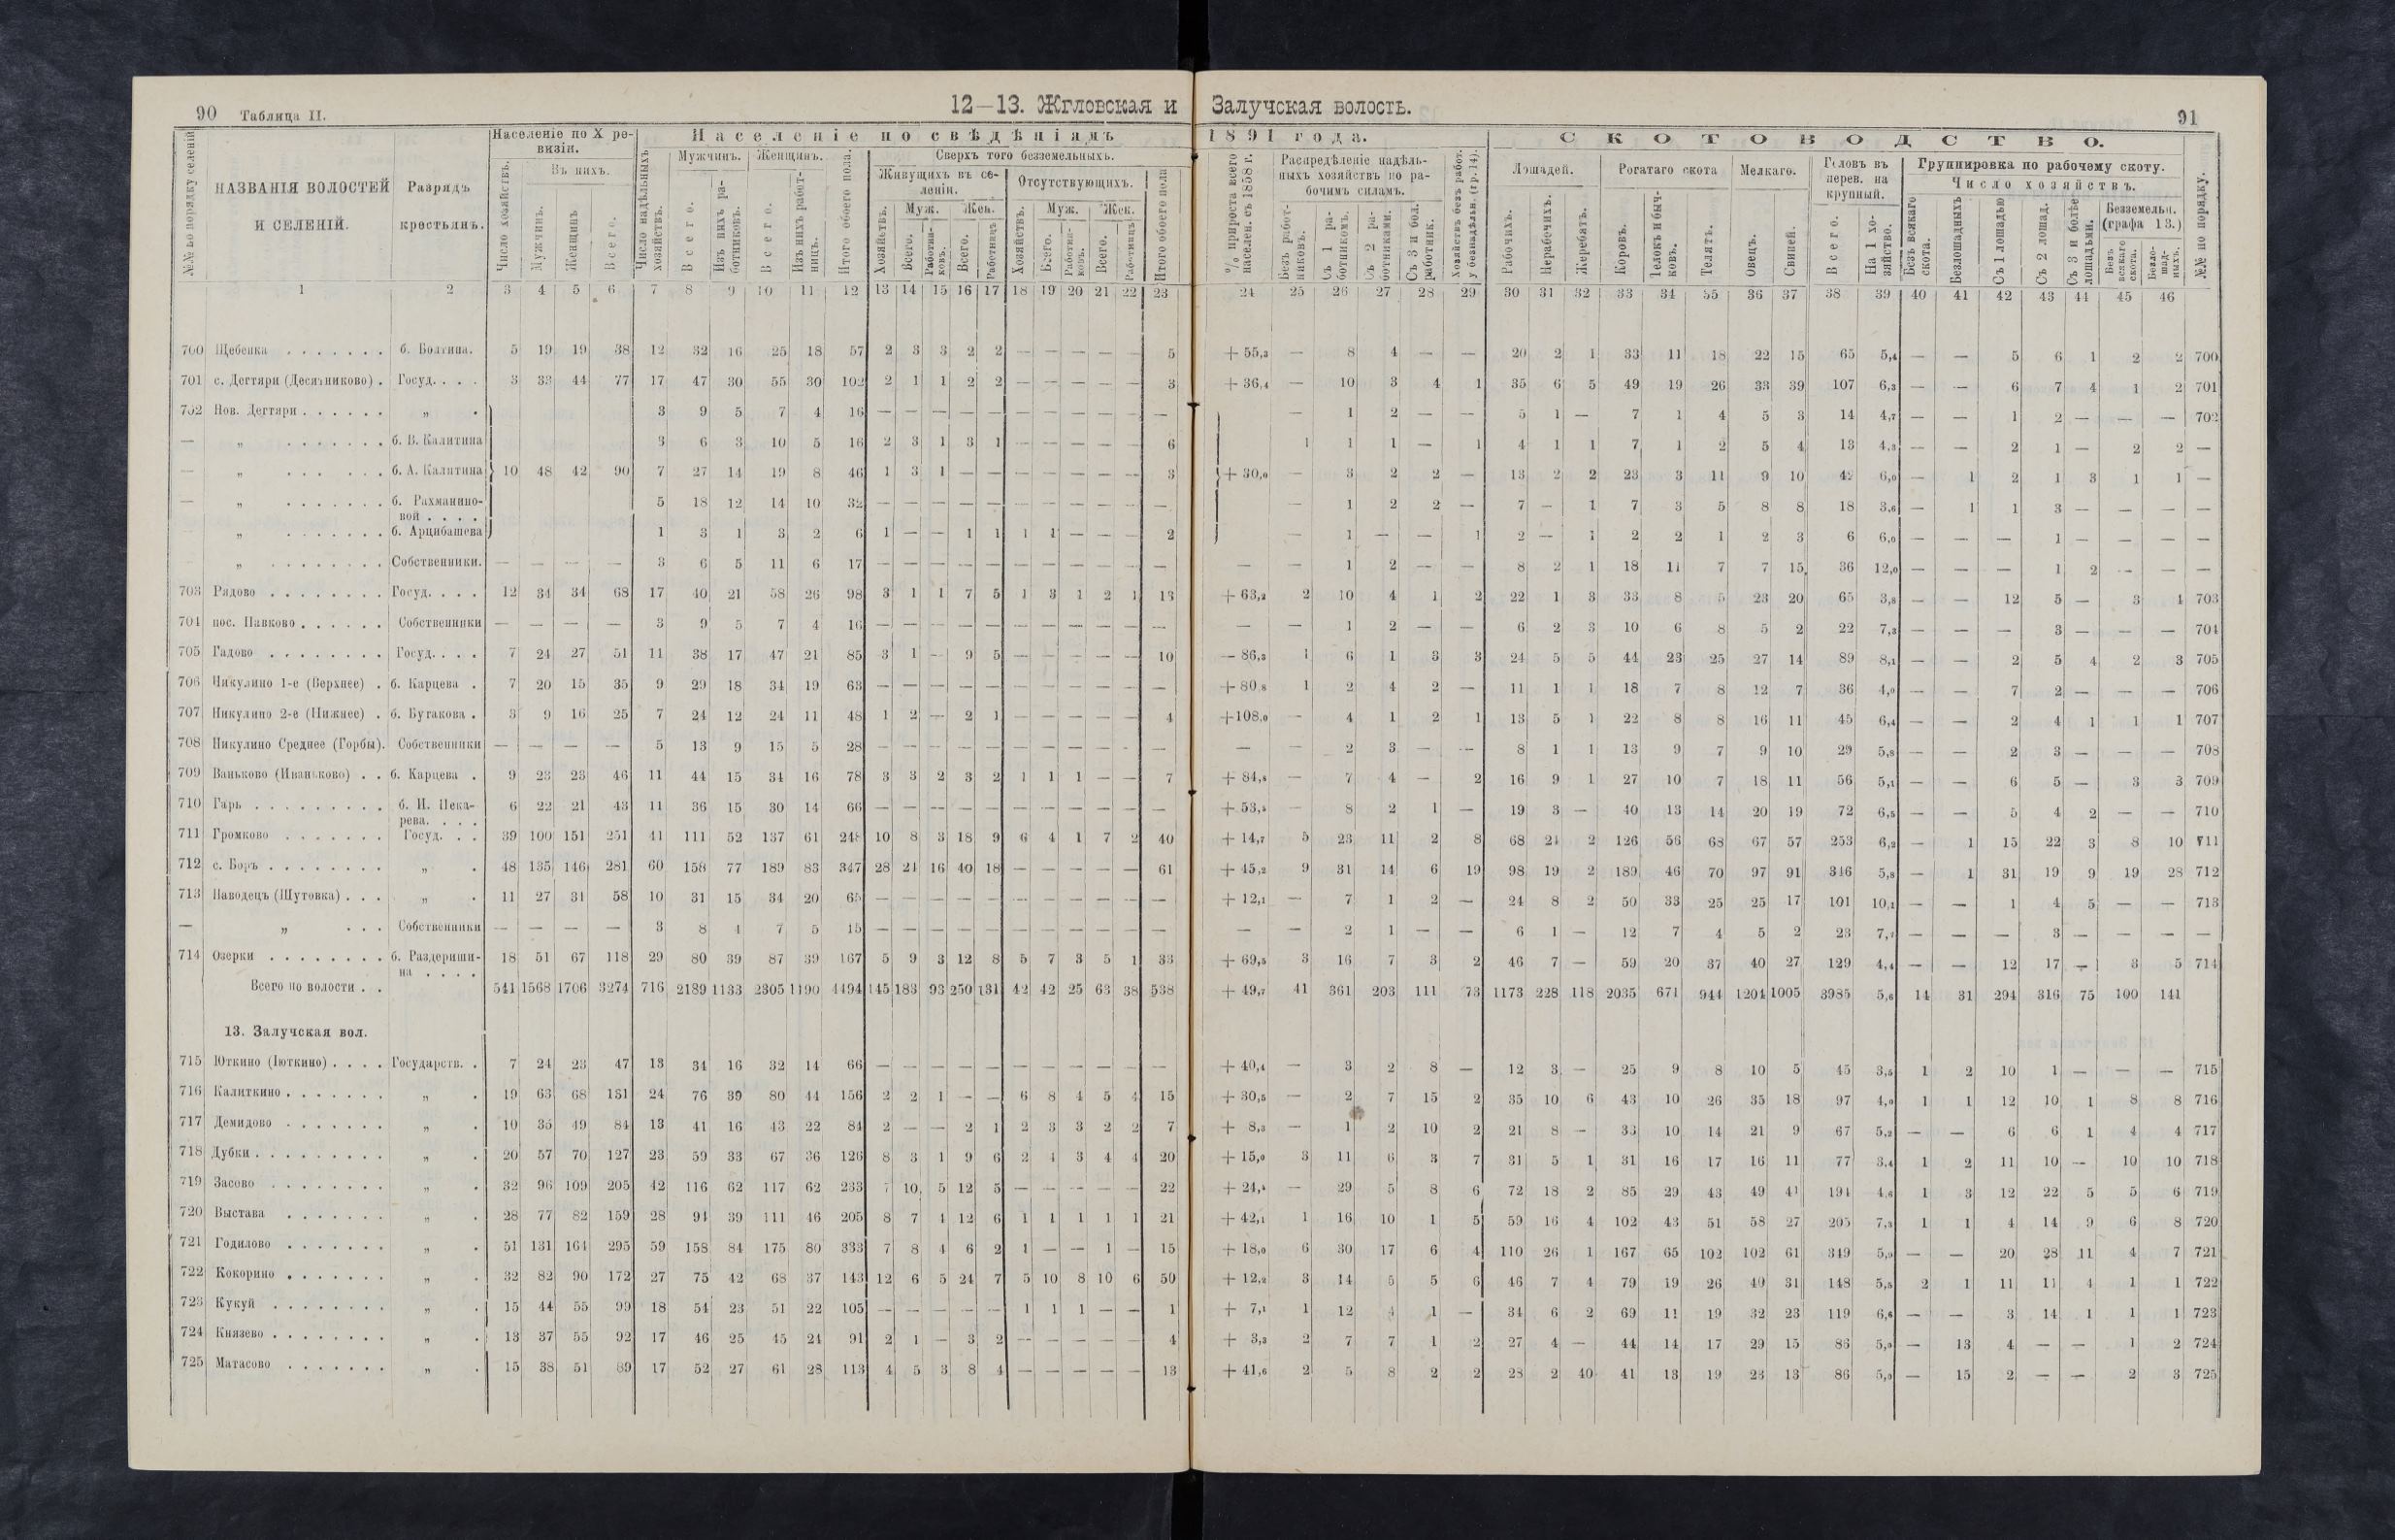 90 Таблица II.
12—13. Жгловская и Залучская волость.
91
№№ по порядку селеній
НАЗВАНІЯ ВОЛОСТЕЙ И СЕЛЕНІЙ.
Разрядъ крестьянъ.
Населеніе по X ревизіи.
Число хозяйствъ.
Въ нихъ.
Мужчинъ.
Женщинъ
Всего.
Населеніе по свѣдѣніямъ 1891 года.
Число надѣльныхъ хозяйствъ.
Мужчинъ.
Всего.
Изъ нихъ работниковъ.
Женщинъ.
Всего.
Изъ нихъ работницъ.
Итого обоего пола.
Сверхъ того безземельныхъ.
Живущихъ въ селеніи.
Хозяйствъ.
Муж.
Всего.
Работниковъ.
Жен.
Всего.
Работницъ
Отсутствующихъ.
Хозяйствъ.
Муж.
Всего.
Работниковъ.
Жен.
Всего.
Работницъ
Итого обоего пола
% прироста всего населен. съ 1858 г.
Распредѣленіе надѣльныхъ хозяйствъ по рабочимъ силамъ.
Безъ работниковъ.
Съ 1 работникомъ.
Съ 2 работниками.
Съ 3 и бол. работник.
Хозяйствъ безъ работ. у безнадѣльн. (гр. 14).
СКОТОВОДСТВО.
Лошадей.
Рабочихъ.
Нерабочихъ.
Жеребятъ.
Рогатаго скота
Коровъ.
Телокъ и бычковъ.
Телятъ.
Мелкаго.
Овецъ.
Свиней.
Головъ въ перев. на крупный.
Всего.
На 1 хозяйство.
Группировка по рабочему скоту.
Число хозяйствъ.
Безъ всякаго скота.
Безлошадныхъ
Съ 1 лошадью
Съ 2 лошад.
Съ 3 и болѣе лошадьми.
Безземельн. (графа 13.)
Безъ всякаго скота.
Безлошадныхъ.
№№ по порядку.
1 2 3 4 5 6 7 8 9 10 11 12 13 14 15 16 17 18 19 20 21 22 23 24 25 26 27 28 29 30 31 32 33 34 35 36 37 38 39 40 41 42 43 44 45 46
700 Щебенка б. Болтина. 5 19 19 38 12 32 16 25 18 57 2 3 3 2 2 — — — — — 5 + 55,3 — 8 4 — — 20 2 1 33 11 18 22 15 65 5,4 — — 5 6 1 2 2 700
701 с. Дегтяри (Десятниково) . Госуд. 3 33 44 77 17 47 30 55 30 102 2 1 1 2 2 — — — — — 3 + 36,4 — 10 3 4 1 35 6 5 49 19 26 33 39 107 6,3 — — 6 7 4 1 2 701
702 Нов. Дегтяри „ 3 9 5 7 4 16 — — — — — — — — — — — — 1 2 — — 5 1 — 7 1 4 5 3 14 4,7 — — 1 2 — — — 702
— „ б. В. Калитина 3 6 3 10 5 16 2 3 1 3 1 — — — — — 6 1 1 1 — 1 4 1 1 7 1 2 5 4 13 4,3 — — 2 1 — 2 2 —
— „ б. А. Калитина 10 48 42 90 7 27 14 19 8 46 1 3 1 — — — — — — — 3 + 30,0 — 3 2 2 — 13 2 2 23 3 11 9 10 42 6,0 — 1 2 1 3 1 1 —
— „ б. Рахманиновой 5 18 12 14 10 32 — — — — — — — — — — — — 1 2 2 — 7 — 1 7 3 5 8 8 18 3,6 — 1 1 3 — — — —
„ б. Арцибашева 1 3 1 3 2 6 1 — — 1 1 1 1 — — — 2 — 1 — — 1 2 — 1 2 2 1 2 3 6 6,0 — — — 1 — — — —
„ Собственники. — — — — 3 6 5 11 6 17 — — — — — — — — — — — — — 1 2 — — 8 2 1 18 11 7 7 15 36 12,0 — — — 1 2 — — —
703 Рядово Госуд. 12 34 34 68 17 40 21 58 26 98 3 1 1 7 5 1 3 1 2 1 13 + 63,2 2 10 4 1 2 22 1 3 33 8 5 23 20 65 3,8 — — 12 5 — 3 4 703
704 пос. Павково Собственники — — — — 3 9 5 7 4 16 — — — — — — — — — — — — — 1 2 — — 6 2 3 10 6 8 5 2 22 7,3 — — — 3 — — — 704
705 Гадово Госуд. 7 24 27 51 11 38 17 47 21 85 3 1 — 9 5 — — — — — 10 — 86,3 1 6 1 3 3 24 5 5 44 23 25 27 14 89 8,1 — — 2 5 4 2 3 705
706 Никулино 1-е (Верхнее) . б. Карцева . 7 20 15 35 9 29 18 34 19 63 — — — — — — — — — — — + 80,8 1 2 4 2 — 11 1 1 18 7 8 12 7 36 4,0 — — 7 2 — — — 706
707 Никулино 2-е (Нижнее) . б. Бутакова . 3 9 16 25 7 24 12 24 11 48 1 2 — 2 1 — — — — — 4 +108,0 — 4 1 2 1 13 5 1 22 8 8 16 11 45 6,4 — — 2 4 1 1 1 707
708 Никулино Среднее (Горбы). Собственники — — — — 5 13 9 15 5 28 — — — — — — — — — — — — — 2 3 — — 8 1 1 13 9 7 9 10 29 5,8 — — 2 3 — — — 708
709 Ваньково (Иваньково) . . б. Карцева . 9 23 23 46 11 44 15 34 16 78 3 3 2 3 2 1 1 1 — — 7 + 84,8 — 7 4 — 2 16 9 1 27 10 7 18 11 56 5,1 — — 6 5 — 3 3 709
710 Гарь б. И. Пекарева. 6 22 21 43 11 36 15 30 14 66 — — — — — — — — — — — + 53,5 — 8 2 1 — 19 3 — 40 13 14 20 19 72 6,5 — — 5 4 2 — — 710
711 Громково Госуд. 39 100 151 251 41 111 52 137 61 248 10 8 3 18 9 6 4 1 7 2 40 + 14,7 5 23 11 2 8 68 24 2 126 56 68 67 57 253 6,2 — 1 15 22 3 8 10 711
712 с. Боръ „ 48 135 146 281 60 158 77 189 83 347 28 24 16 40 18 — — — — — 61 + 45,2 9 31 14 6 19 98 19 2 189 46 70 97 91 346 5,8 — 1 31 19 9 19 28 712
713 Наводецъ (Шутовка) „ 11 27 31 58 10 31 15 34 20 65 — — — — — — — — — — — + 12,1 — 7 1 2 — 24 8 2 50 33 25 25 17 101 10,1 — — 1 4 5 — — 713
— „ Собственники — — — — 3 8 4 7 5 15 — — — — — — — — — — — — — 2 1 — — 6 1 — 12 7 4 5 2 23 7,7 — — — 3 — — — —
714 Озерки б. Раздеришина 18 51 67 118 29 80 39 87 39 167 5 9 3 12 8 5 7 3 5 1 33 + 69,5 3 16 7 3 2 46 7 — 59 20 37 40 27 129 4,4 — — 12 17 — 3 5 714
Всего по волости . . 541 1568 1706 3274 716 2189 1133 2305 1190 4494 145 183 93 250 131 42 42 25 63 38 538 + 49,7 41 361 203 111 73 1173 228 118 2035 671 944 1204 1005 3985 5,6 14 31 294 316 75 100 141
13. Залучская вол.
715 Юткино (Іюткино) Государств. . 7 24 23 47 13 34 16 32 14 66 — — — — — — — — — — — + 40,4 — 3 2 8 — 12 3 — 25 9 8 10 5 45 3,5 1 2 10 1 — — — 715
716 Калиткино „ 19 63 68 131 24 76 39 80 44 156 2 2 1 — — 6 8 4 5 4 15 + 30,5 — 2 7 15 2 35 10 6 43 10 26 35 18 97 4,0 1 1 12 10 1 8 8 716
717 Демидово „ 10 35 49 84 13 41 16 43 22 84 2 — — 2 1 2 3 3 2 2 7 + 8,3 — 1 2 10 2 21 8 — 33 10 14 21 9 67 5,2 — — 6 6 1 4 4 717
718 Дубки „ 20 57 70 127 23 59 33 67 36 126 8 3 1 9 6 2 4 3 4 4 20 + 15,0 3 11 6 3 7 31 5 1 31 16 17 16 11 77 3,4 1 2 11 10 — 10 10 718
719 Засово „ 32 96 109 205 42 116 62 117 62 233 7 10 5 12 5 — — — — — 22 + 24,4 — 29 5 8 6 72 18 2 85 29 43 49 41 194 4,6 1 3 12 22 5 5 6 719
720 Выстава „ 28 77 82 159 28 94 39 111 46 205 8 7 4 12 6 1 1 1 1 1 21 + 42,1 1 16 10 1 5 59 16 4 102 43 51 58 27 205 7,3 1 1 4 14 9 6 8 720
721 Годилово „ 51 131 164 295 59 158 84 175 80 333 7 8 4 6 2 1 — — 1 — 15 + 18,0 6 30 17 6 4 110 26 1 167 65 102 102 61 349 5,9 — — 20 28 11 4 7 721
722 Кокорино „ 32 82 90 172 27 75 42 68 37 143 12 6 5 24 7 5 10 8 10 6 50 + 12,2 3 14 5 5 6 46 7 4 79 19 26 49 31 148 5,5 2 1 11 11 4 1 1 722
723 Кукуй „ 15 44 55 99 18 54 23 51 22 105 — — — — — 1 1 1 — — 1 + 7,1 1 12 4 1 — 34 6 2 69 11 19 32 23 119 6,6 — — 3 14 1 1 1 723
724 Князево „ 13 37 55 92 17 46 25 45 24 91 2 1 — 3 2 — — — — — 4 + 3,3 2 7 7 1 2 27 4 — 44 14 17 29 15 86 5,0 — 13 4 — — 1 2 724
725 Матасово „ 15 38 51 89 17 52 27 61 28 113 4 5 3 8 4 — — — — — 13 + 41,6 2 5 8 2 2 28 2 40 41 13 19 23 13 86 5,0 — 15 2 — — 2 3 725